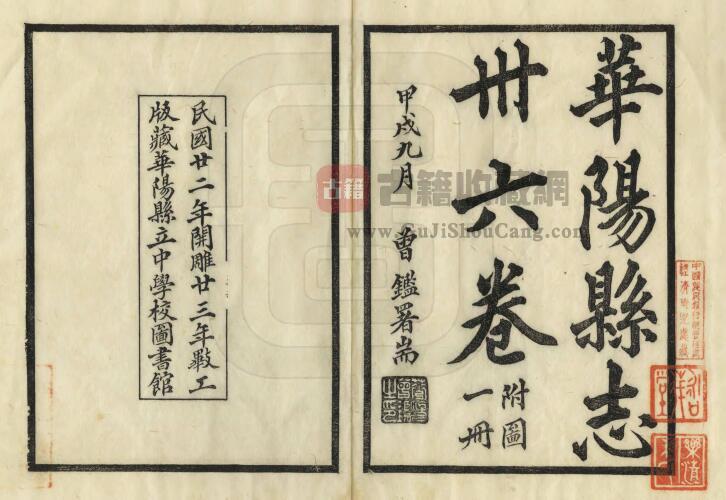 華陽縣志
卅六卷
附圖
一冊
甲戌九月 曾鑑署耑
民國廿二年開雕廿三年斁工
版藏華陽縣立中學校圖書館
古籍 古籍收藏網
www.GuJiShouCang.com